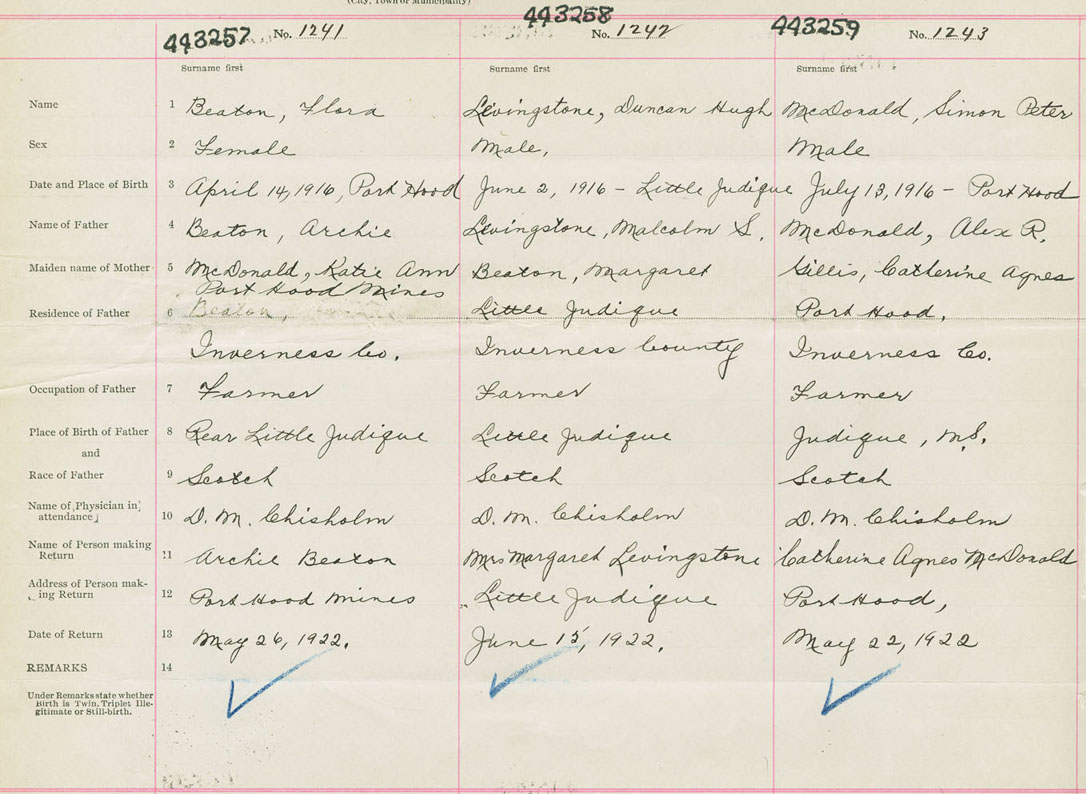 (City, Town or Municipality)
443257 No. 1241
443258 No. 1242
443259 No. 1243
Surname first Surname first Surname first
Name 1 Beaton, Flora Levingstone, Duncan Hugh McDonald, Simon Peter
Sex 2 Female Male, Male
Date and Place of Birth 3 April 14, 1916, Port Hood June 2, 1916 – Little Judique July 13, 1916 – Port Hood
Name of Father 4 Beaton, Archie Levingstone, Malcolm S. McDonald, Alex R.
Maiden name of Mother 5 McDonald, Katie Ann Beaton, Margaret Gillis, Catherine Agnes
Port Hood Mines
Residence of Father 6 Beaton, Little Judique Port Hood,
Inverness Co. Inverness County Inverness Co.
Occupation of Father 7 Farmer Farmer Farmer
Place of Birth of Father 8 Rear Little Judique Little Judique Judique, N.S.
and
Race of Father 9 Scotch Scotch Scotch
Name of Physician in
attendance 10 D. M. Chisholm D. M. Chisholm D. M. Chisholm
Name of Person making
Return 11 Archie Beaton Mrs Margaret Levingstone Catherine Agnes McDonald
Address of Person mak-
ing Return 12 Port Hood Mines Little Judique Port Hood,
Date of Return 13 May 26, 1922. June 15, 1922. May 22, 1922
REMARKS 14
Under Remarks state whether
Birth is Twin, Triplet Ille-
gitimate or Still-birth.